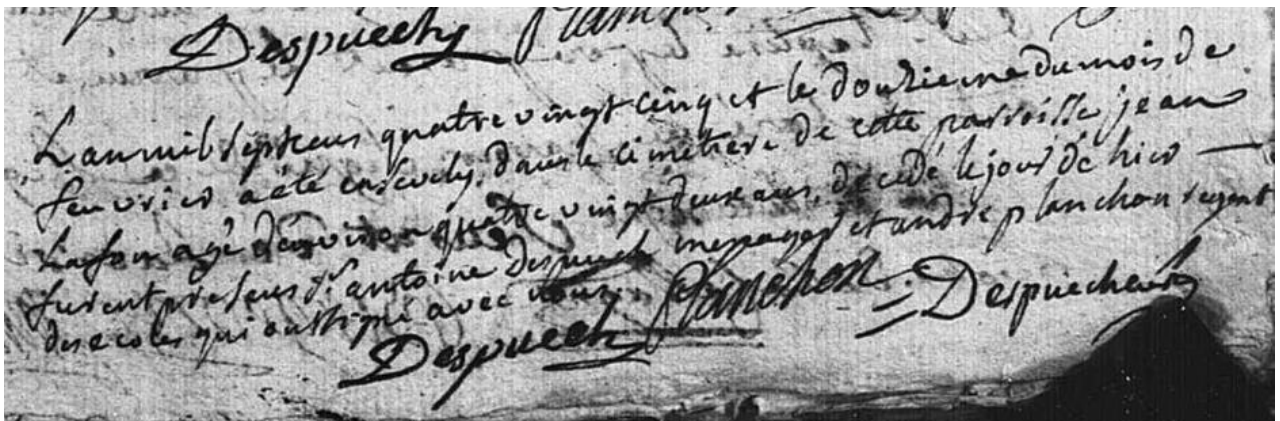 Despuech Planchon
L'an mil sept cens quatre vingt cinq et le douzieme du mois de
fevurier a été ensevely dans le cimetiere de cette parroisse jean
Lafon agé d'environ quatre vingt deux ans, decedé le jour de hier
furent presens Sr antoine Despuech menager et andre planchon regent
des ecoles qui ont signé avec nous.
Despuech Planchon Despuech